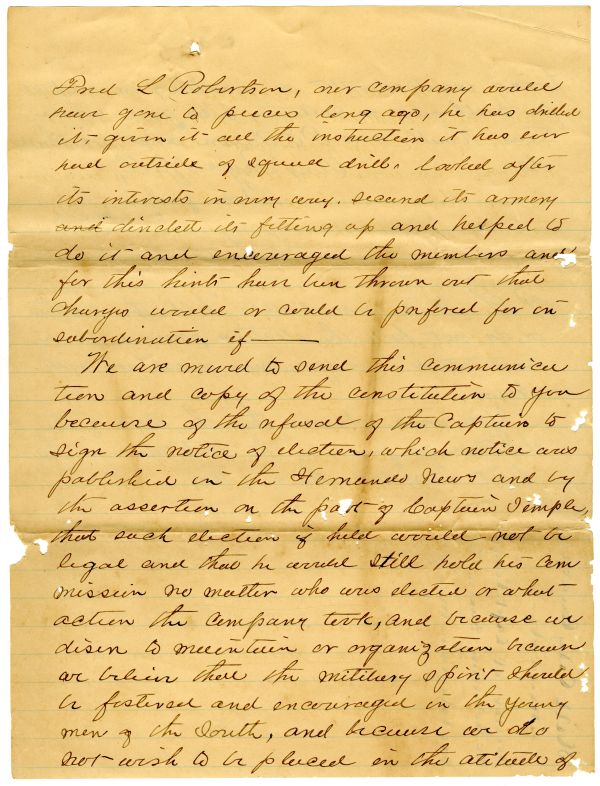 Fred L Robertson, our company would
have gone to pieces long ago, he has drilled
it, given it all the instruction it has ever
had outside of squad drill. looked after
its interests in every way. secured its armory
and directed its fitting up and helped to
do it and encouraged the members and
for this hints have been thrown out that
charges would or could be prefered for in
subordination if ———
We are moved to send this communica
tion and copy of the constitution to you
because of the refusal of the Captain to
sign the notice of election, which notice was
published in the Hernando News and by
the assertion on the part of Captain Temple,
that such election if held would not be
legal and that he would still hold his com
mission no matter who was elected or what
action the company took, and because we
desire to maintain or organization because
we believe that the military spirit should
be fostered and encouraged in the young
men of the South, and because we do
not wish to be placed in the atitude of